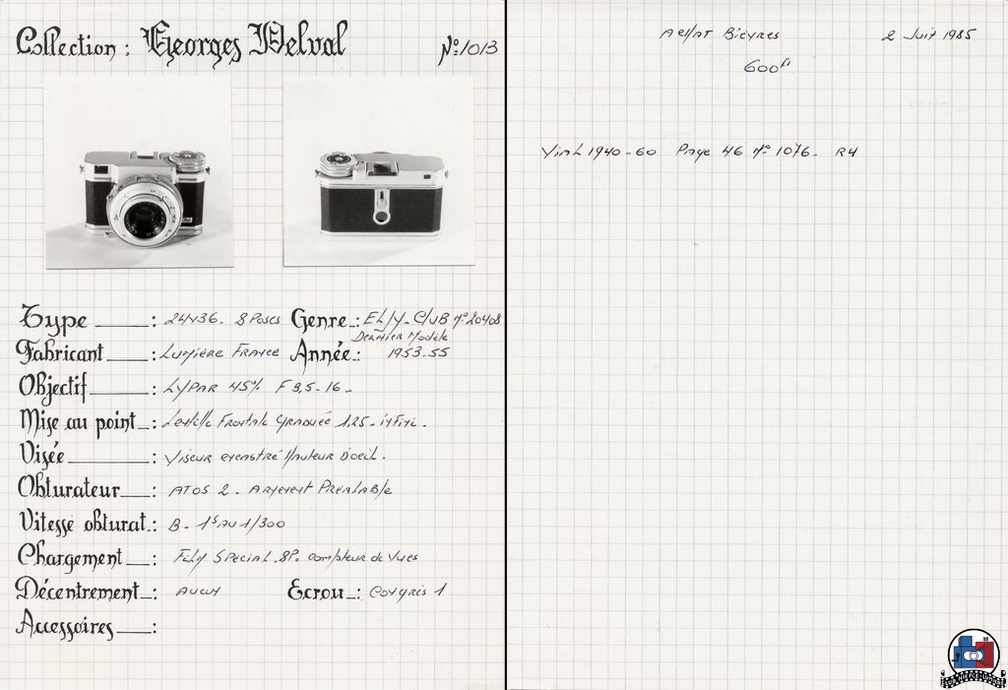 Collection : Georges Delval N°:1013
Type : 24x36. 8 Poses Genre : ELJY-CLUB N°20408
Dernier Modèle
Fabricant : Lumière France Année : 1953-55
Objectif : LYPAR 45% F 3,5-16-
Mise au point : Lentille Frontale Graduée 1.25- infini.
Visée : Viseur excentré Hauteur D'oeil.
Obturateur : ATOS 2. Armement Prealable
Vitesse obturat. : B- 1S AU 1/300
Chargement : Film Special. 8P. compteur de Vues
Décentrement : Aucun Ecrou : Congrès 1
Accessoires :
Achat Bièvres 2 Juin 1985
600
Vial 1940-60 Page 46 N° 1076- R4